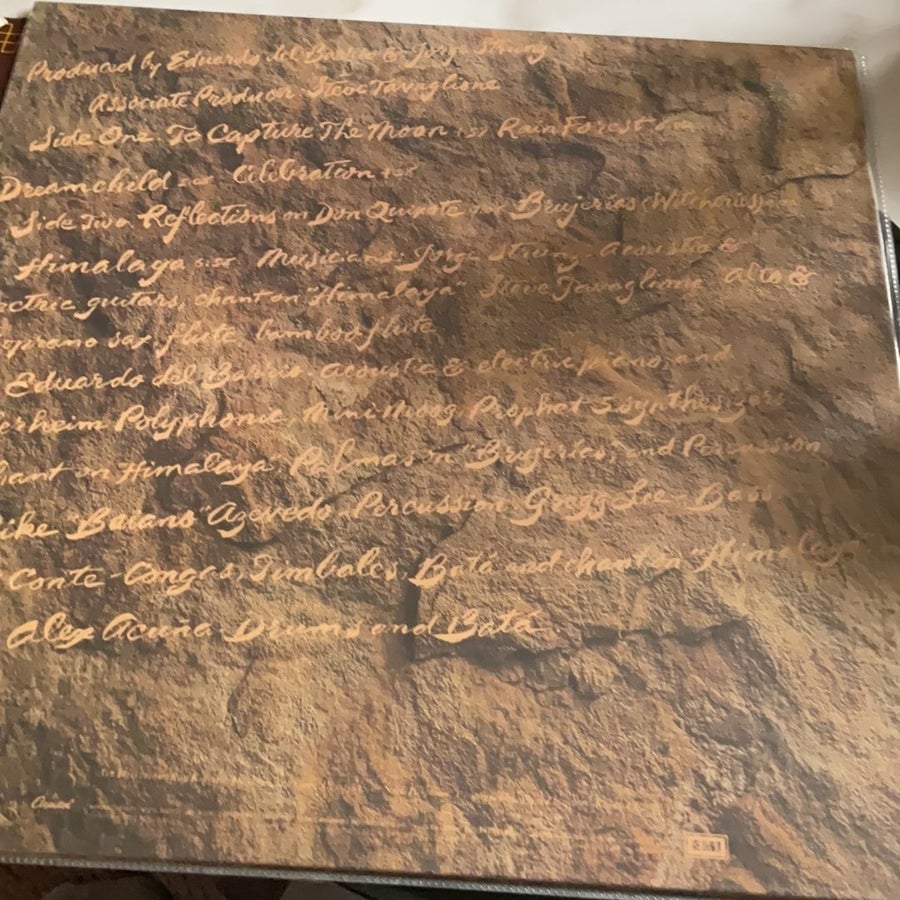 Produced by Eduardo del Barrio & Jorge Strunz
Associate Producer Steve Tavaglione
Side One To Capture The Moon Rain Forest
Dreamchild Celebration
Side Two Reflections on Don Quixote Brujerias (Witcheries)
Himalaya Musicians: Jorge Strunz Acoustic &
ectric guitars, chant on "Himalaya" Steve Tavaglione Alto &
soprano sax, flute, bamboo flute
Eduardo del Barrio acoustic & electric piano, and
erheim Polyphonic, Mini Moog, Prophet 5 synthesizers
hant on "Himalaya" Palmas on "Brujerias", and Percussion
ike "Baiano" Azevedo Percussion Gregg Lee Bass
Conte - Congas, Timbales, Batá and chant on "Himalaya"
Alex Acuña Drums and Batá
Capitol
EMI